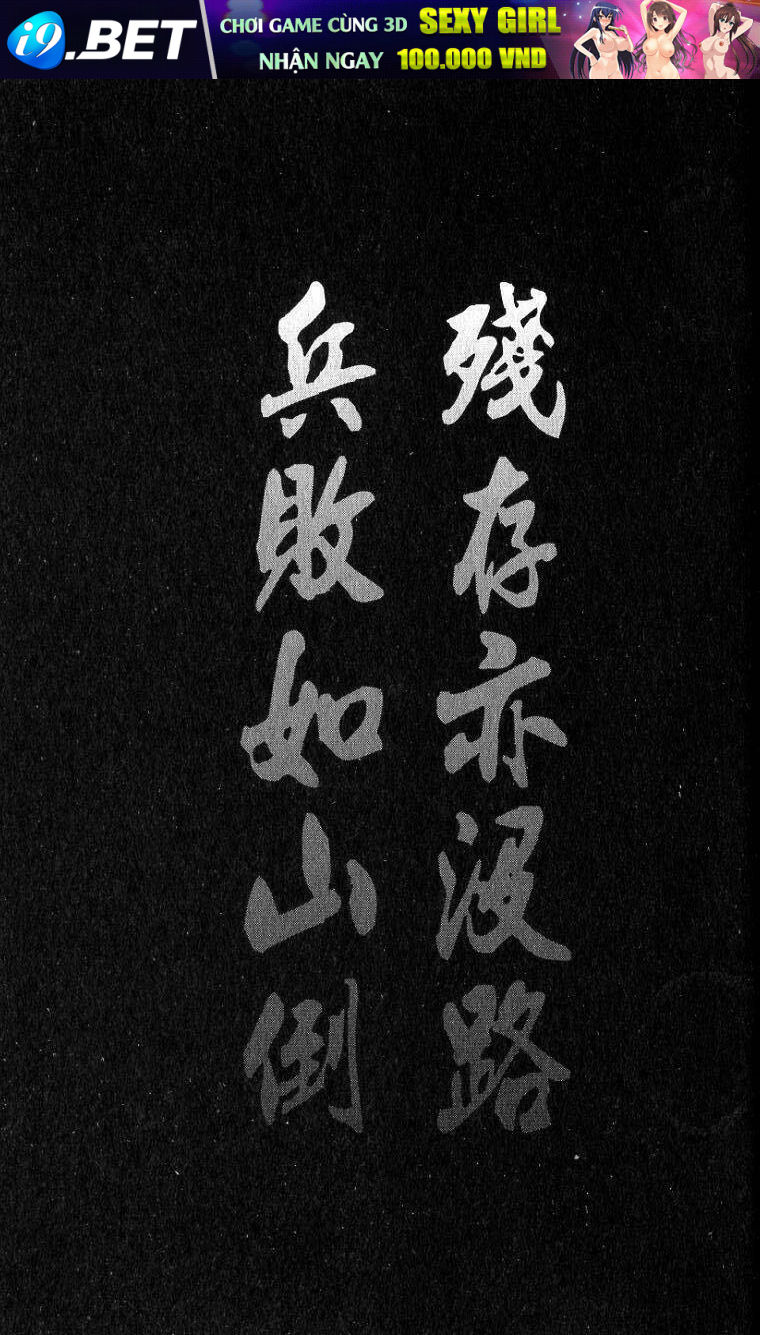 i9.BET
CHƠI GAME CÙNG 3D SEXY GIRL
NHẬN NGAY 100.000 VND
殘存亦沒路
兵敗如山倒